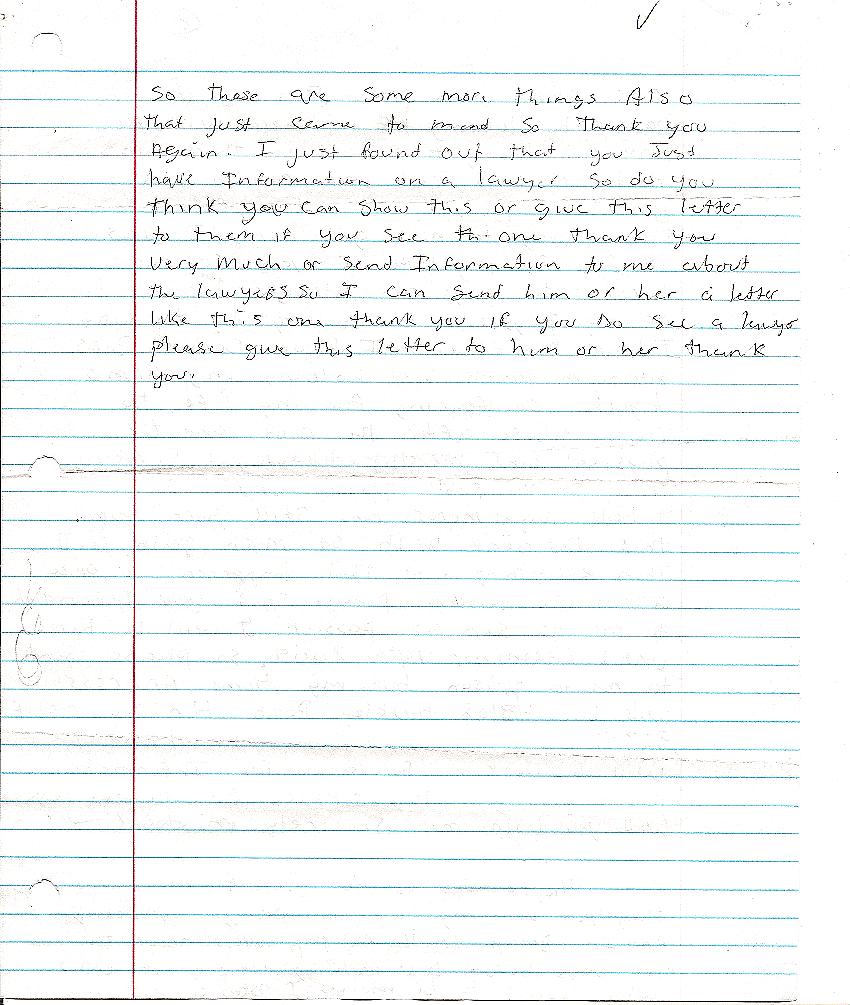 So these are some more things Also
that just came to mind So Thank you
Again. I just found out that you Just
have Information on a lawyer so do you
think you can show this or give this letter
to them if you see th. one thank you
very much or send Information to me about
the lawyers so I can send him or her a letter
like this one thank you if you do see a lawyr
please give this letter to him or her thank
you.